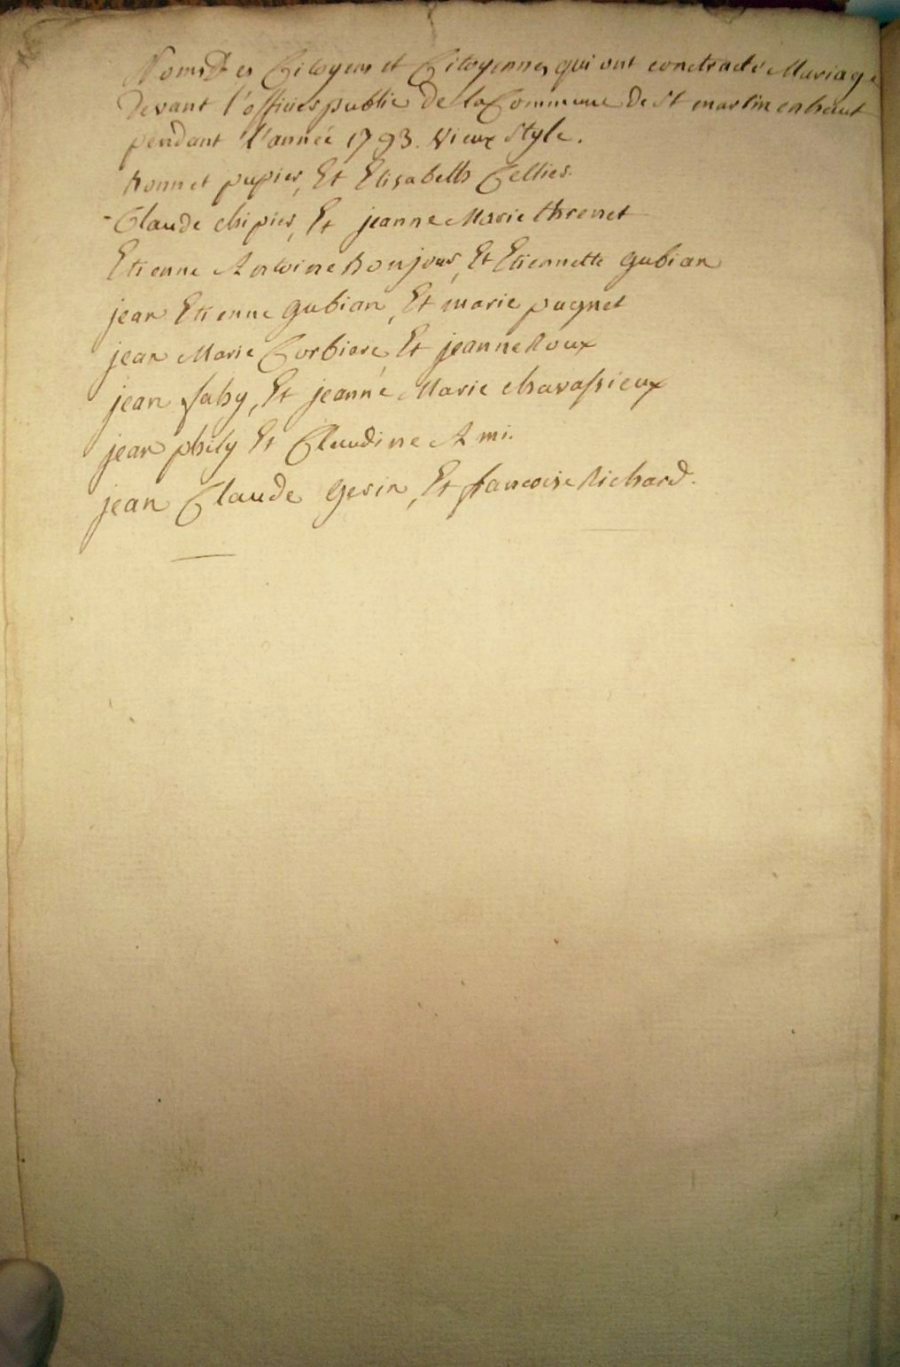 Noms Des Citoyens et Citoyennes qui ont contracté Mariage
Devant l'officier public De la Commune De St martin en haut
pendant l'année 1793. Vieux Style.
Bonnet pupier, Et Elisabeth Cellier
Claude chipier, Et jeanne Marie threnet
Etienne Antoine Bonjour, Et Etiennette gubian
jean Etienne gubian, Et marie pugnet
jean Marie Corbiere, Et jeanne Roux
jean faby, Et jeanne Marie chavassieux
jean phily Et Claudine Ami
jean Claude gerin, Et francoise Richard.